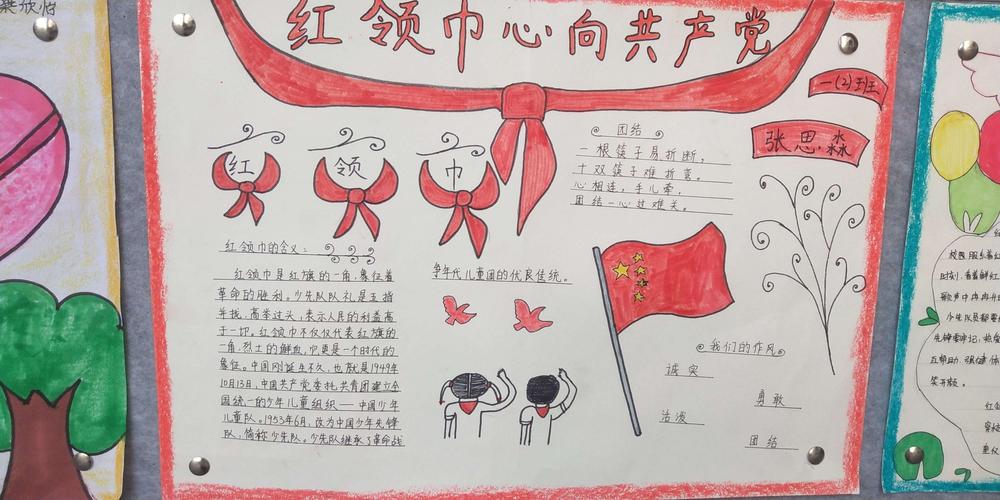 红领巾心向共产党
一(2)班
张思淼
红领巾
团结
一根筷子易折断，
十双筷子难折弯。
心相连，手儿牵，
团结一心过难关。
红领巾的含义：
红领巾是红旗的一角，象征着
革命的胜利。少先队队礼是五指
并拢，高举过头，表示人民的利益高
于一切。红领巾不仅仅代表红旗的
一角，烈士的鲜血，它更是一个时代的
象征。中国刚诞生不久，也就是1949年
10月13日，中国共产党委托共青团建立全
国统一的少年儿童组织——中国少年
儿童队。1953年6月，改为中国少年先锋
队，简称少先队。少先队继承了革命战
争年代儿童团的优良传统。
我们的作风
诚实
勇敢
活泼
团结
校园
时刻，看着鲜红
歌声中冉冉升
少先队员都要
先锋要牢记，热爱
互帮助，强健体
笑开颜。
红